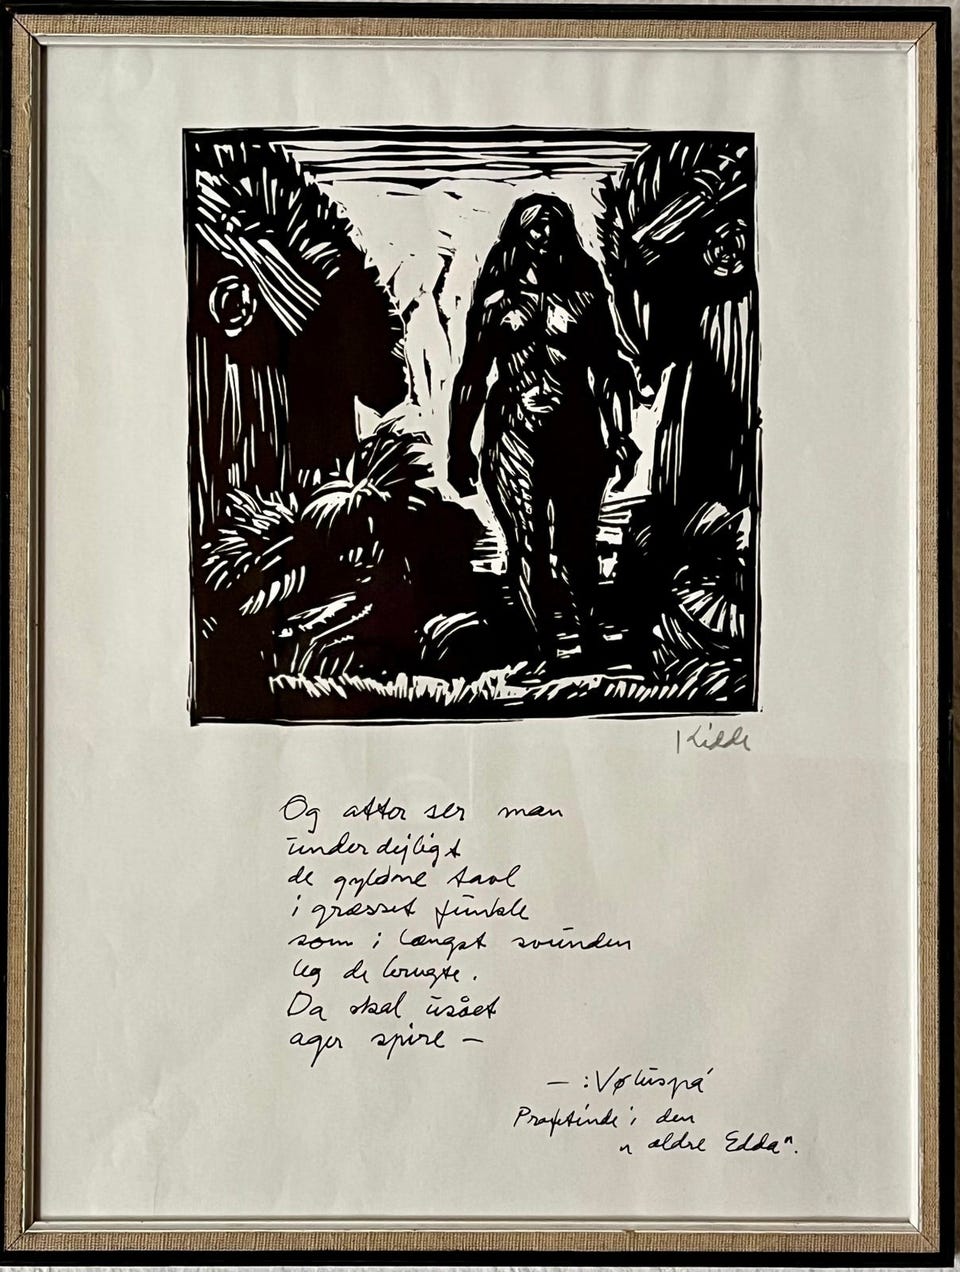 Kidde
Og atter ser man
underdejligt
de gyldne tavl
i græsset funkle
som i længst svunden
leg de brugte.
Da skal usået
ager spire —
— : Vøluspá
Profetinde i den
" ældre Edda".